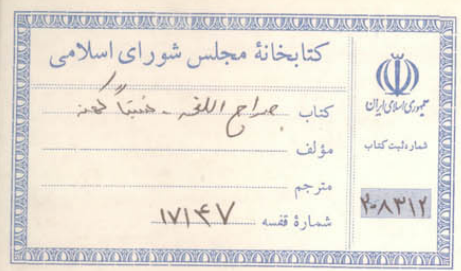 کتابخانهٔ مجلس شورای اسلامی
کتاب صراح اللغه - نسبتاً کهنه
مؤلف
مترجم
شمارهٔ قفسه ۱۷۱۴۷
جمهوری اسلامی ایران
شماره ثبت کتاب
۲۰۸۳۱۲